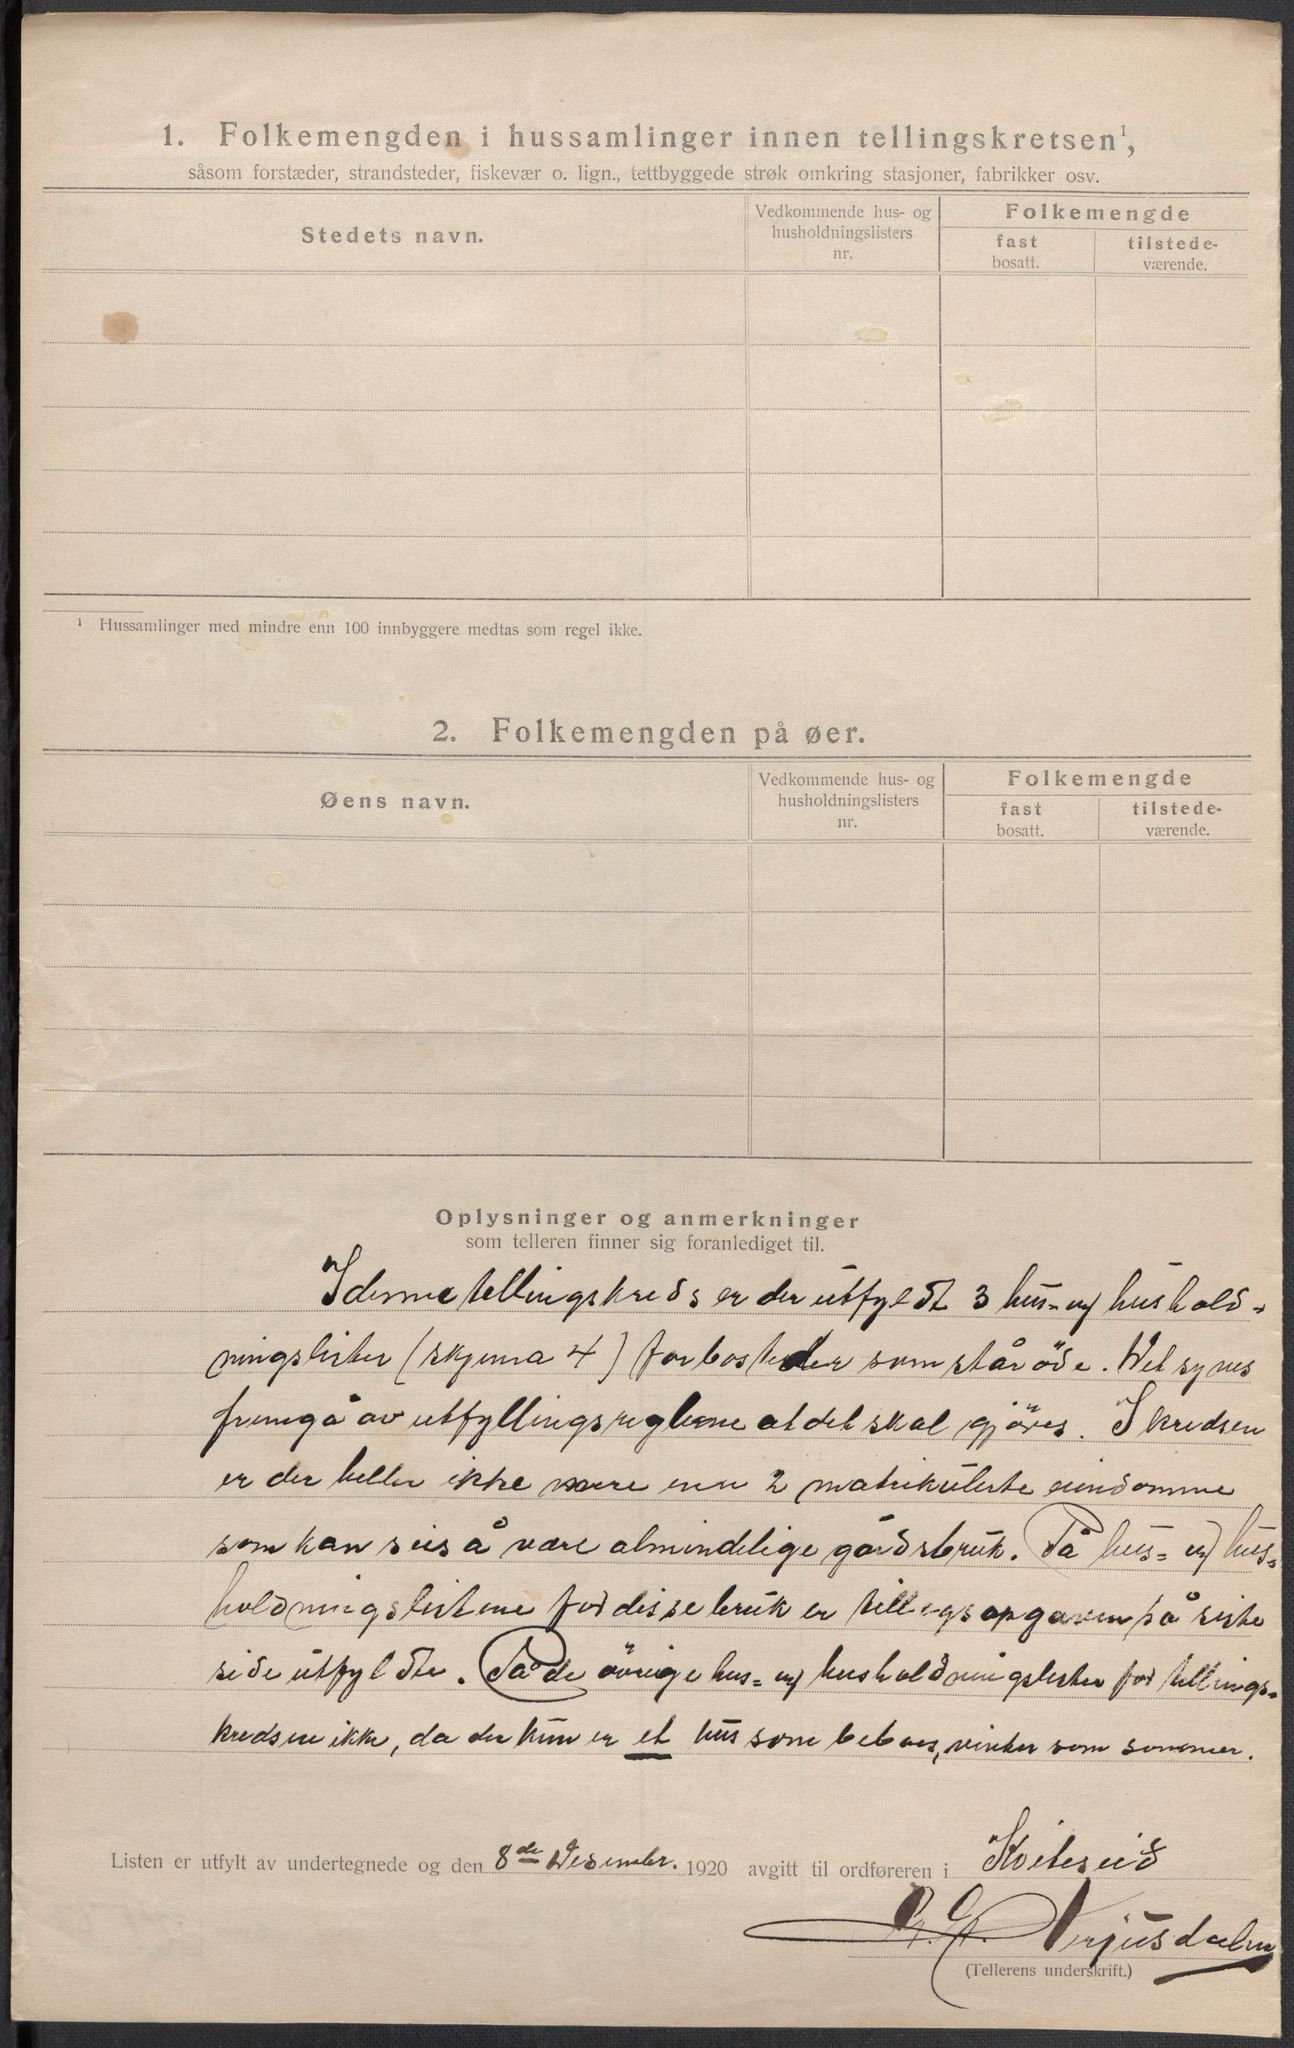 1. Folkemengden i hussamlinger innen tellingskretsen¹,
såsom forstæder, strandsteder, fiskevær o. lign., tettbyggede strøk omkring stasjoner, fabrikker osv.
Stedets navn.
Vedkommende hus- og
husholdningslisters
nr.
Folkemengde
fast
bosatt.
tilstede-
værende.
¹ Hussamlinger med mindre enn 100 innbyggere medtas som regel ikke.
2. Folkemengden på øer.
Øens navn.
Vedkommende hus- og
husholdningslisters
nr.
Folkemengde
fast
bosatt.
tilstede-
værende.
Oplysninger og anmerkninger
som telleren finner sig foranlediget til.
I denne tellingskreds er der utfyldt 3 hus- og hushold-
ningslister (skjema 4) for bosteder som står öde. Det synes
fremgå av utfyllingsreglene at det skal gjöres. I kredsen
er der heller ikke mere enn 2 matrikulerte eiendomme
som kan sies å være almindelige gårdsbruk. På hus- og hus-
holdningslistene for disse bruk er tillegsopgaven på siste
side utfyldte. På de övrige hus- og husholdningslister for tellings-
kredsen ikke, da der kun er et hus som beboes, vinter som sommer.
Listen er utfylt av undertegnede og den 8de Desember. 1920 avgitt til ordføreren i Kviteseid
(Tellerens underskrift.)